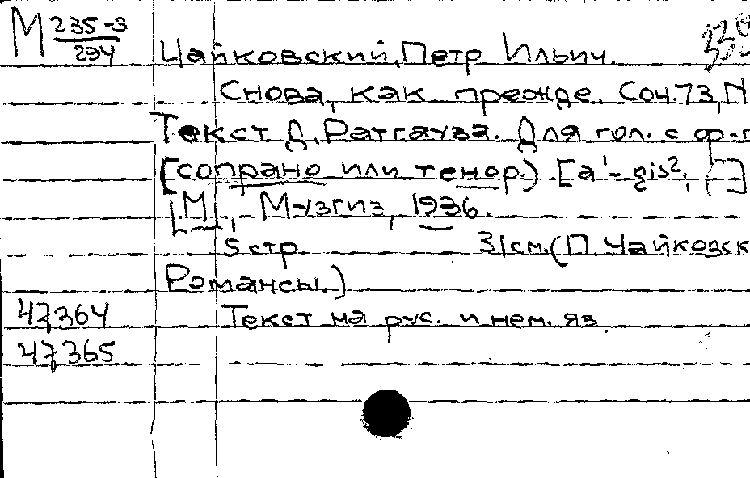 М 235-3
294
Чайковский, Петр Ильич.
Снова, как прежде. Соч. 73, N
Текст Д. Ратгауза. Для гол. с ф-п
(сопрано или тенор.) [a¹-gis²,
[М], Музгиз, 1936.
5 стр. 31 см. (П. Чайковск
Романсы.)
47364 Текст на рус. и нем. яз.
47365